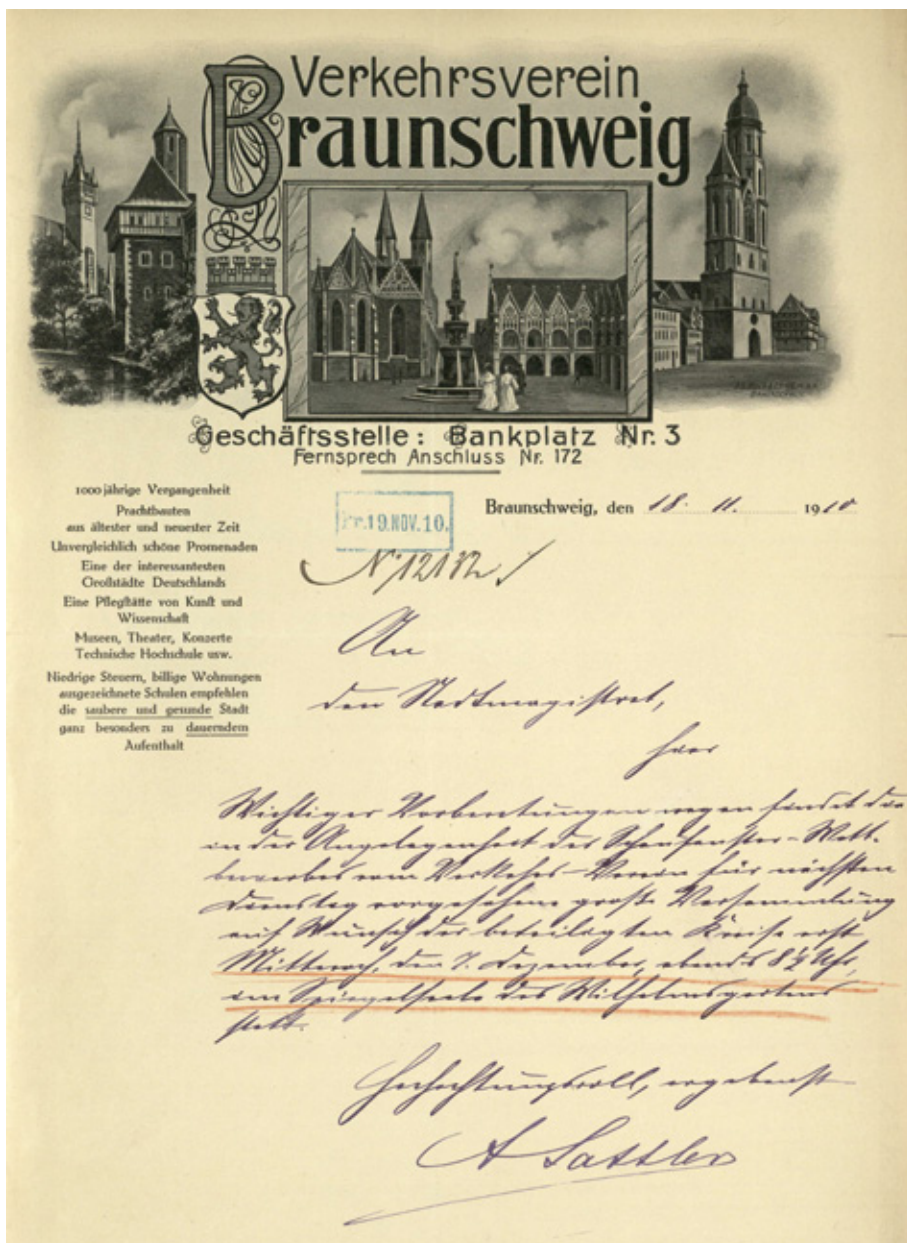 Verkehrsverein
Braunschweig
Geschäftsstelle: Bankplatz Nr. 3
Fernsprech Anschluss Nr. 172
1000 jährige Vergangenheit
Prachtbauten
aus ältester und neuester Zeit
Unvergleichlich schöne Promenaden
Eine der interessantesten
Großstädte Deutschlands
Eine Pflegstätte von Kunst und
Wissenschaft
Museen, Theater, Konzerte
Technische Hochschule usw.
Niedrige Steuern, billige Wohnungen
ausgezeichnete Schulen empfehlen
die saubere und gesunde Stadt
ganz besonders zu dauerndem
Aufenthalt
Pr. 19. NOV. 10.
Braunschweig, den 18. 11. 1910
No 12182
An
den Stadtmagistrat,
hier
Wichtiger Vorberatungen wegen findet die
in der Angelegenheit des Schaufenster-Wett-
bewerbes vom Verkehrs-Verein für nächsten
Dienstag vorgesehene große Versammlung
auf Wunsch der beteiligten Kreise erst
Mittwoch, den 7. Dezember, abends 8½ Uhr,
im Spiegelsaale des Wilhelmsgartens
statt.
Hochachtungsvoll, ergebenst
A Sattler